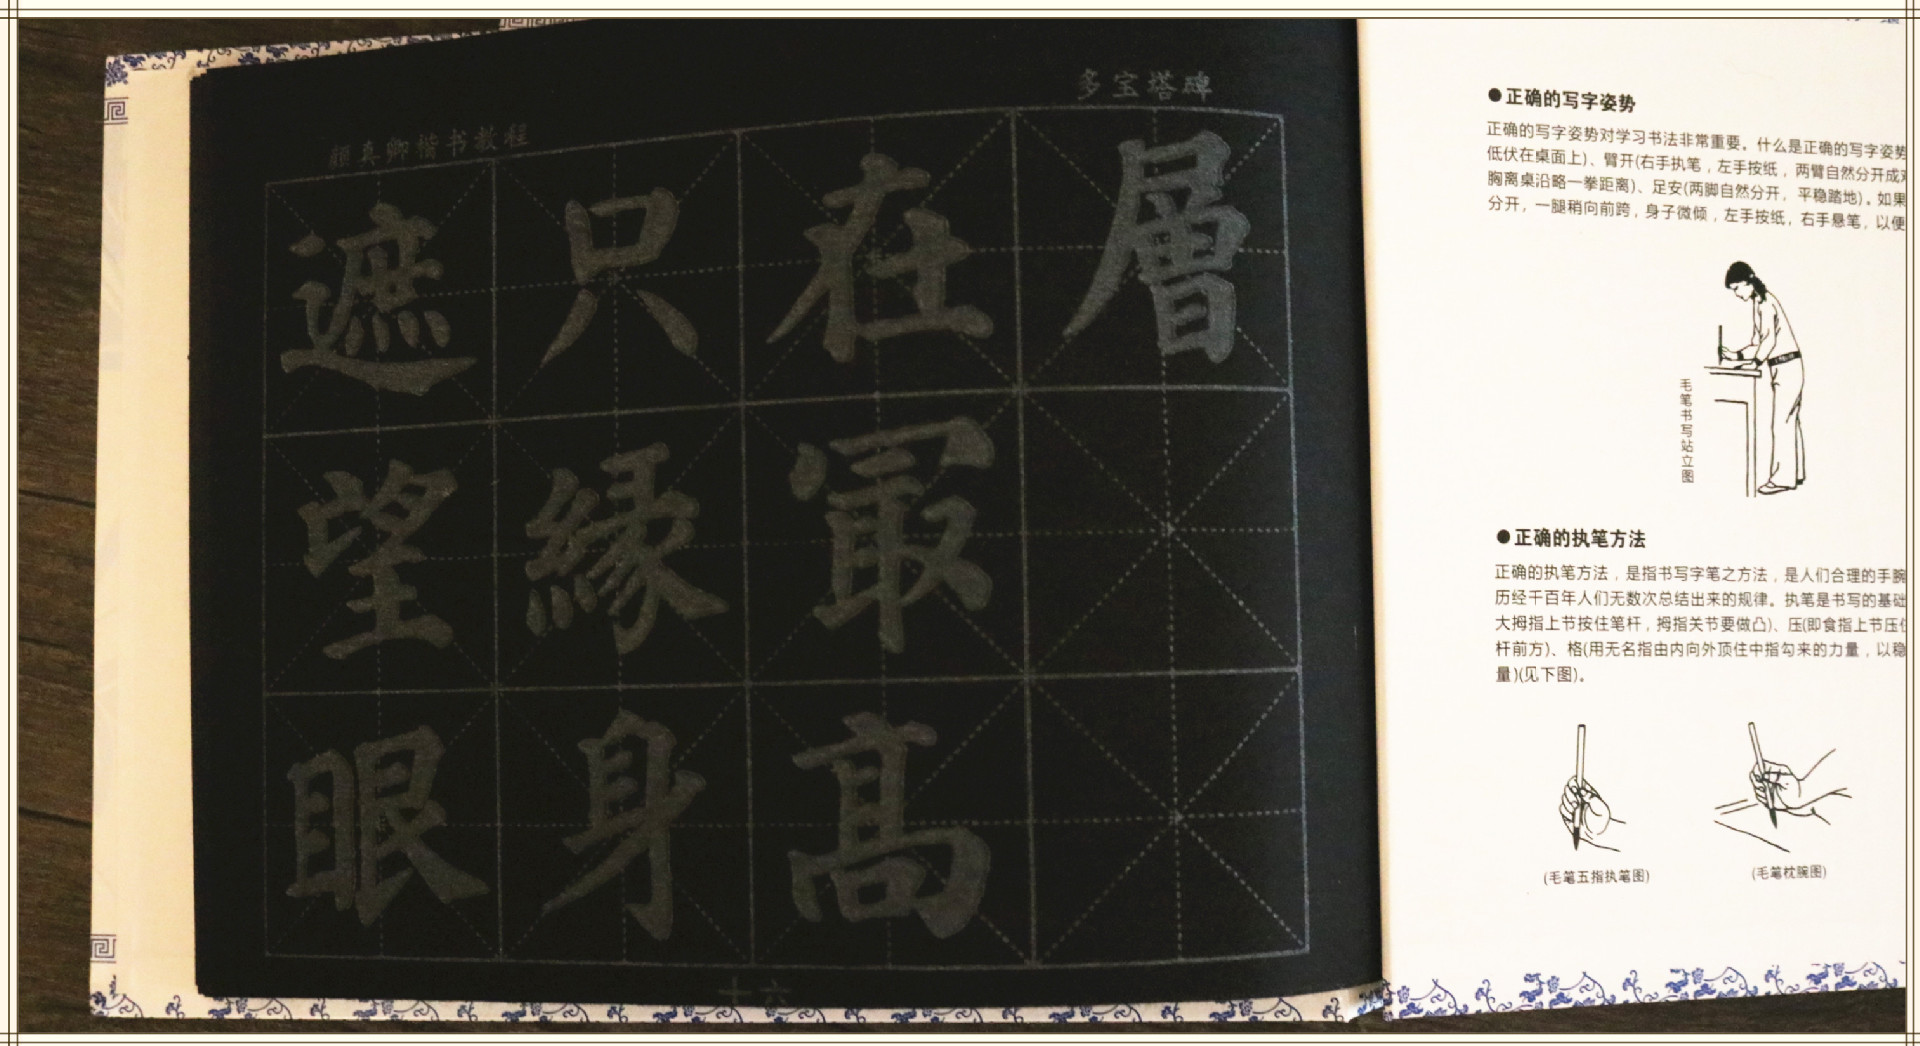 多宝塔碑
颜真卿楷书教程
層
在最高
只緣身
遮望眼
十六
●正确的写字姿势
正确的写字姿势对学习书法非常重要。什么是正确的写字姿势
低伏在桌面上)、臂开(右手执笔，左手按纸，两臂自然分开成
胸离桌沿略一拳距离)、足安(两脚自然分开，平稳踏地)。如果
分开，一腿稍向前跨，身子微倾，左手按纸，右手悬笔，以便
毛笔书写站立图
●正确的执笔方法
正确的执笔方法，是指书写字笔之方法，是人们合理的手腕
历经千百年人们无数次总结出来的规律。执笔是书写的基础
大拇指上节按住笔杆，拇指关节要做凸)、压(即食指上节压住
杆前方)、格(用无名指由内向外顶住中指勾来的力量，以稳
量)(见下图)。
(毛笔五指执笔图)
(毛笔枕腕图)